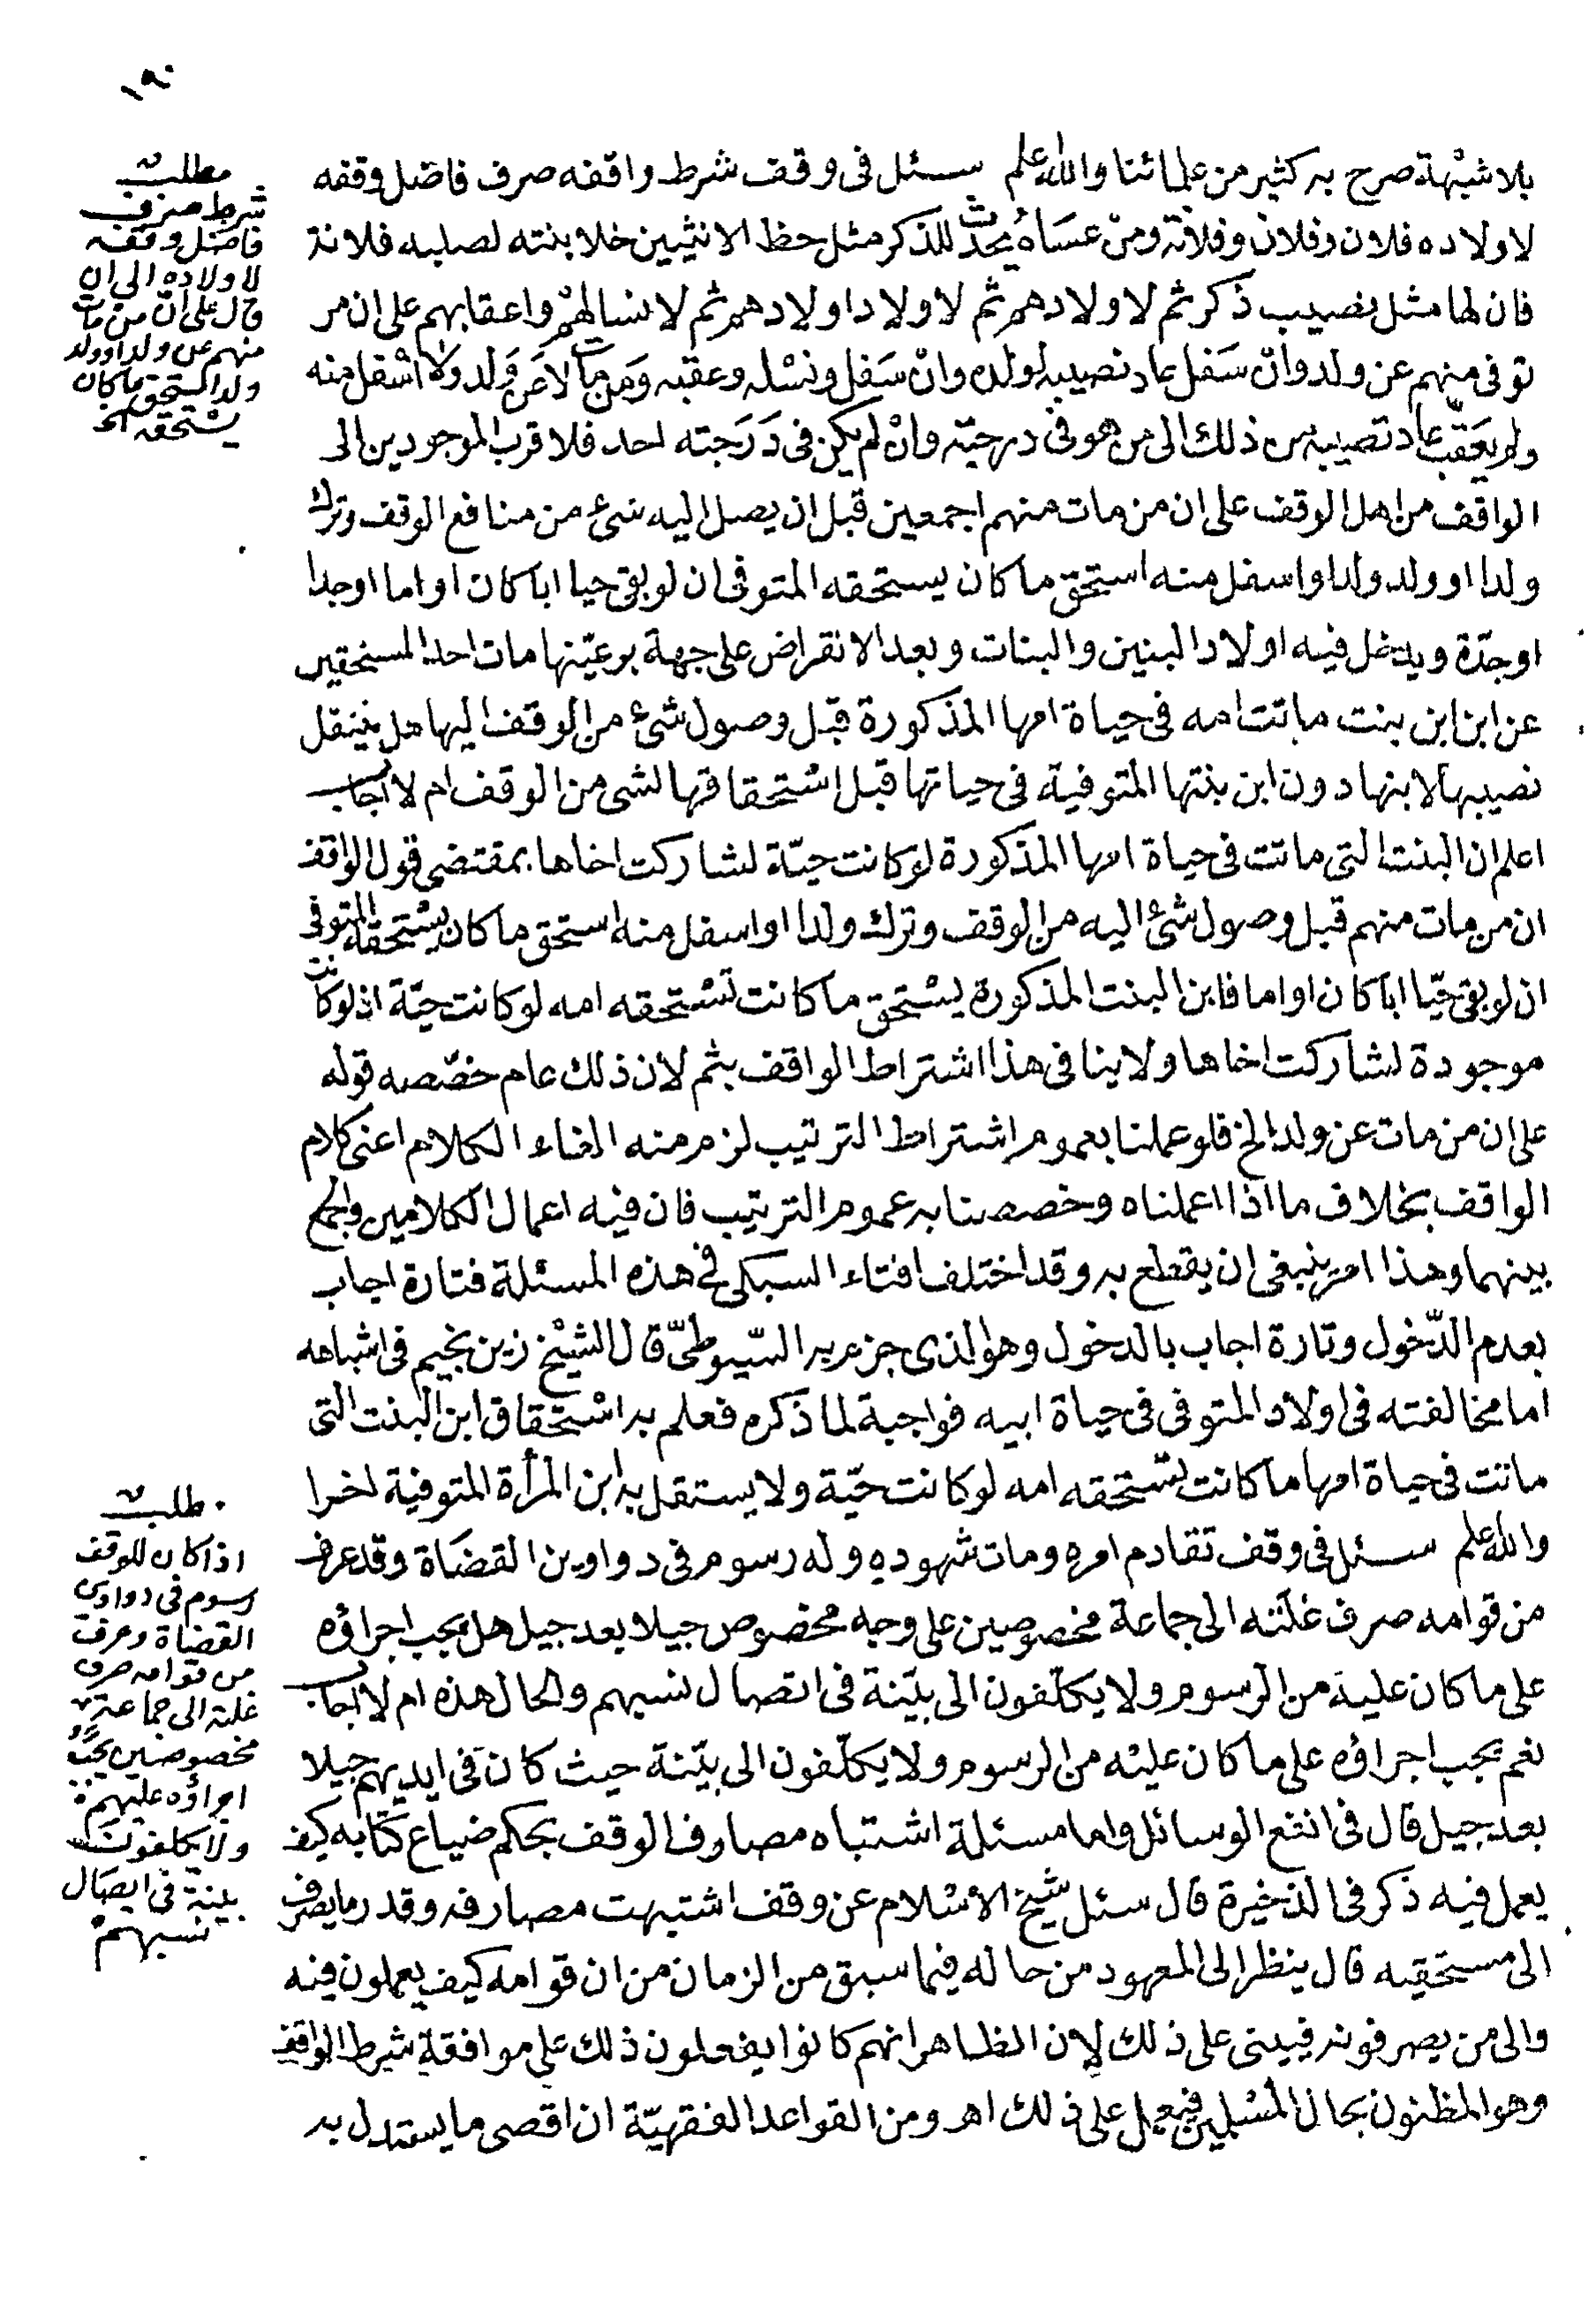 ١٩٠
بلا شبهة صرح به كثير من علمائنا والله اعلم سئل فى وقف شرط واقفه صرف فاضل وقفه
لاولاده فلان وفلان وفلانة ومن عساه يحدث للذكر مثل حظ الانثيين خلا بنته لصلبه فلانة
فان لها مثل نصيب ذكر ثم لاولادهم ثم لاولاد اولادهم ثم لانسالهم واعقابهم على ان من
توفى منهم عن ولد وان سفل عاد نصيبه لولده وان سفل ونسله وعقبه ومن مات لا عن ولد ولا اسفل منه
ولم يعقب عاد نصيبه من ذلك الى من هو فى درجته وان لم يكن فى درجته احد فلاقرب الموجودين الى
الواقف من اهل الوقف على ان من مات منهم اجمعين قبل ان يصل اليه شئ من منافع الوقف وترك
ولدا او ولد ولد او اسفل منه استحق ما كان يستحقه المتوفى ان لو بقى حيا ابا كان او اما او جدا
او جدة ويدخل فيه اولاد البنين والبنات وبعد الانقراض على جهة بر عينها مات احد المستحقين
عن ابن ابن بنت ماتت امه فى حياة امها المذكورة قبل وصول شئ من الوقف اليها هل ينتقل
نصيبها لابنها دون ابن بنتها المتوفية فى حياتها قبل استحقاقها لشى من الوقف ام لا اجاب
اعلم ان البنت التى ماتت فى حياة امها المذكورة لو كانت حية لشاركت اخاها بمقتضى قول الواقف
ان من مات منهم قبل وصول شئ اليه من الوقف وترك ولدا او اسفل منه استحق ما كان يستحقه المتوفى
ان لو بقى حيا ابا كان او اما فابن البنت المذكورة يستحق ما كانت تستحقه امه لو كانت حية اذ لو كانت
موجودة لشاركت اخاها ولا ينافى هذا اشتراط الواقف بثم لان ذلك عام خصصه قوله
على ان من مات عن ولد الخ فلو عملنا بعموم اشتراط الترتيب لزم منه الغاء الكلام اعنى كلام
الواقف بخلاف ما اذا اعملناه وخصصنا به عموم الترتيب فان فيه اعمال الكلامين والجمع
بينهما وهذا امر ينبغى ان يقطع به وقد اختلف افتاء السبكى فى هذه المسئلة فتارة اجاب
بعدم الدخول وتارة اجاب بالدخول وهو الذى جزم به السيوطى قال الشيخ زين بن نجيم فى اشباهه
اما مخالفته فى اولاد المتوفى فى حياة ابيه فواجبة لما ذكره فعلم به استحقاق ابن البنت التى
ماتت فى حياة امها ما كانت تستحقه امه لو كانت حية ولا يستقل به ابن المرأة المتوفية اخرا
والله اعلم سئل فى وقف تقادم امره ومات شهوده وله رسوم فى دواوين القضاة وقد عرف
من قوامه صرف غلته الى جماعة مخصوصين على وجه مخصوص جيلا بعد جيل هل يجب اجراؤه
على ما كان عليه من الرسوم ولا يكلفون الى بينة فى اتصال نسبهم والحال هذه ام لا اجاب
نعم يجب اجراؤه على ما كان عليه من الرسوم ولا يكلفون الى بينة حيث كان فى ايديهم جيلا
بعد جيل قال فى انفع الوسائل واما مسئلة اشتباه مصارف الوقف بحكم ضياع كتابه كيف
يعمل فيه ذكر فى الذخيرة قال سئل شيخ الاسلام عن وقف اشتبهت مصارفه وقدر ما يصرف
الى مستحقيه قال ينظر الى المعهود من حاله فيما سبق من الزمان من ان قوامه كيف يعملون فيه
والى من يصرفونه فيبنى على ذلك لان الظاهر انهم كانوا يفعلون ذلك على موافقة شرط الواقف
وهو المظنون بحال المسلمين فيعمل على ذلك اه ومن القواعد الفقهية ان اقصى ما يستدل به
مطلب
شرط صرف
فاضل وقفه
لاولاده الى ان
قال على ان من مات
منهم عن ولد او ولد
ولد استحق ما كان
يستحقه الخ
مطلب
اذا كان للوقف
رسوم فى دواوين
القضاة وعرف
من قوامه صرف
غلته الى جماعة
مخصوصين يجب
اجراؤه عليهم
ولا يكلفون
بينة فى ايصال
نسبهم